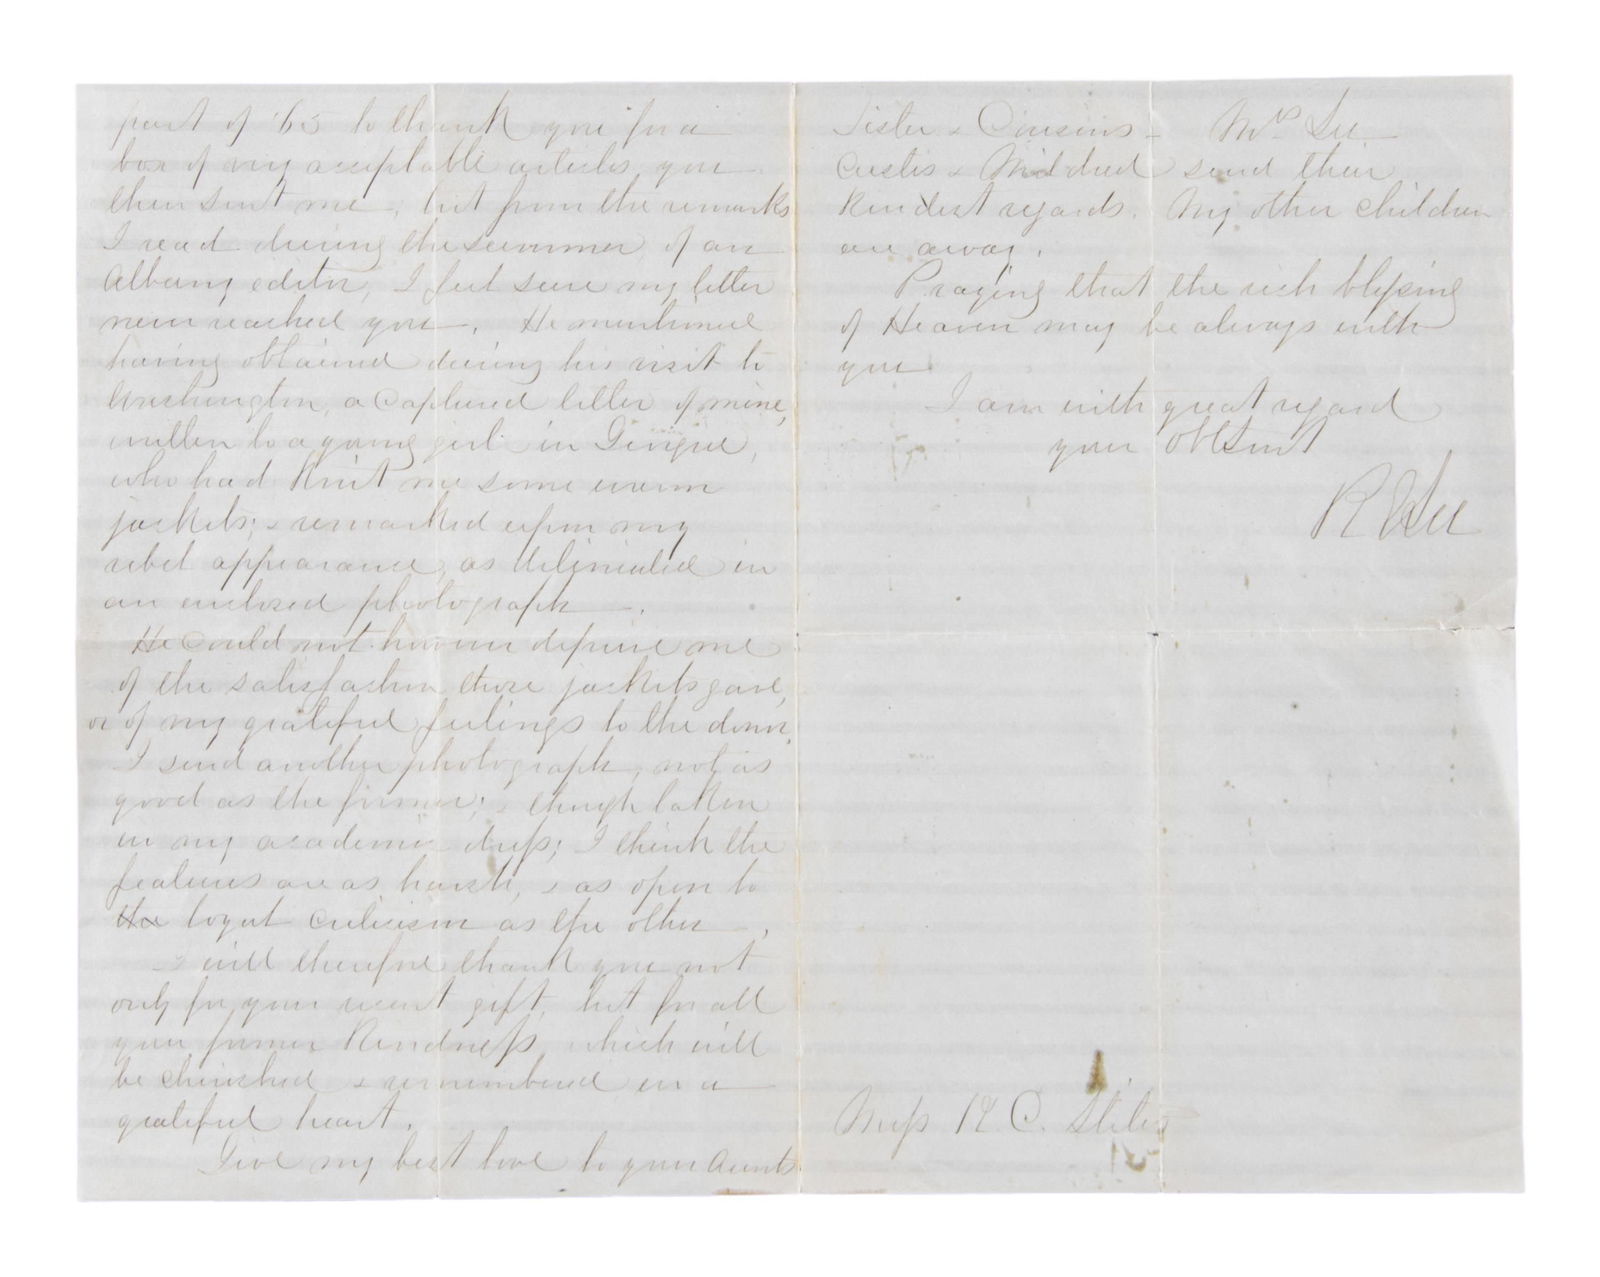 part of '65 to thank you for a
box of my acceptable articles you
then sent me, but from the remarks
I read during the summer, of an
Albany editor, I feel sure my letter
never reached you. He mentioned
having obtained during his visit to
Washington, a captured letter of mine,
written to a young girl in
who had knit me some warm
jackets; & remarked upon my
rebel appearance, as delineated in
an enclosed photograph.
He could not however deprive me
of the satisfaction those jackets gave,
or of my grateful feelings to the donor.
I send another photograph, not as
good as the former; & though taken
in my academic dress; I think the
features are as harsh, & as open to
the loyal criticism as the other.
I will therefore thank you not
only for your recent gift, but for all
your former kindness, which will
be cherished & remembered in a
grateful heart.
Give my best love to your Aunts
Sister & Cousins - Mrs Lee
Custis & Mildred send their
kindest regards. My other children
are away.
Praying that the rich blessing
of Heaven may be always with
you
I am with great regard
your obt Servt
R E Lee
Miss C. Stiles